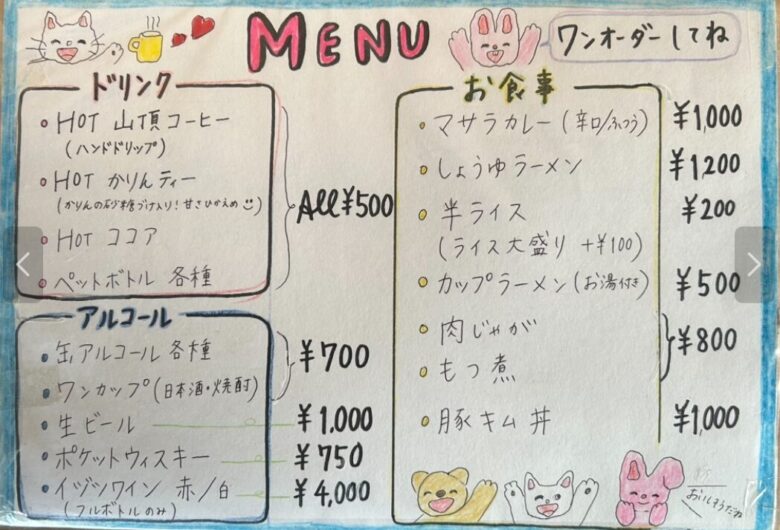 MENU
ワンオーダーしてね
ドリンク
HOT 山頂コーヒー
(ハンドドリップ)
HOT かりんティー
(かりんの砂糖づけ入り!甘さひかえめ)
HOT ココア
ペットボトル 各種
All ¥500
アルコール
缶アルコール 各種
ワンカップ(日本酒・焼酎)
¥700
生ビール ¥1,000
ポケットウィスキー ¥750
イヅツワイン 赤/白 ¥4,000
(フルボトルのみ)
お食事
マサラカレー(辛口/ふつう) ¥1,000
しょうゆラーメン ¥1200
半ライス ¥200
(ライス大盛り +¥100)
カップラーメン(お湯付き) ¥500
肉じゃが
もつ煮
¥800
豚キム丼 ¥1,000
おいしそうだね